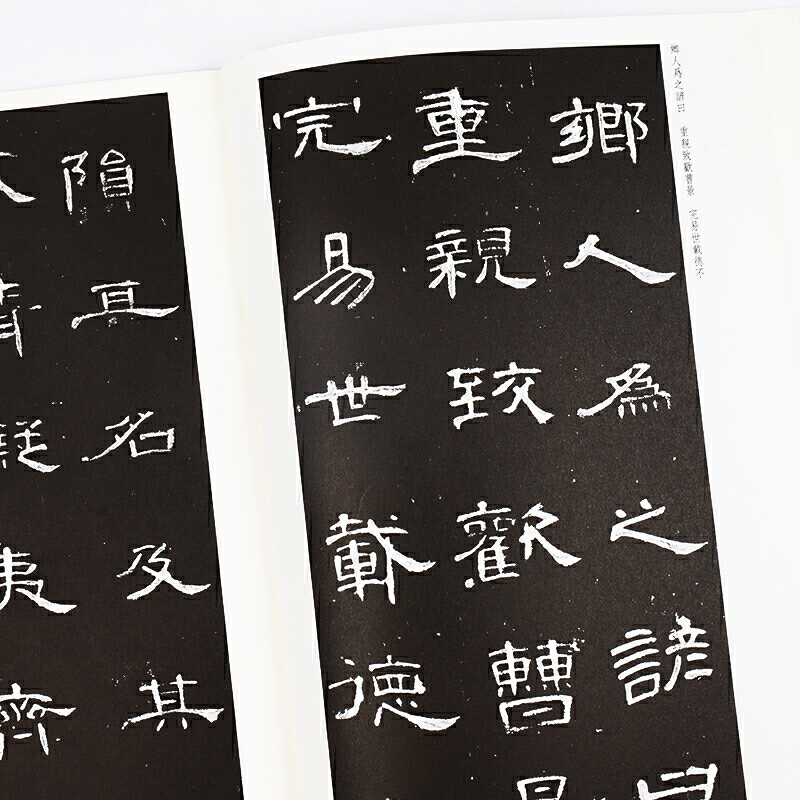 鄉人爲之諺曰 重親致歡曹景 完易世載德不
鄉人為之諺曰
重親致歡曹景
完易世載德
隕亓名及其
清擬夷齊